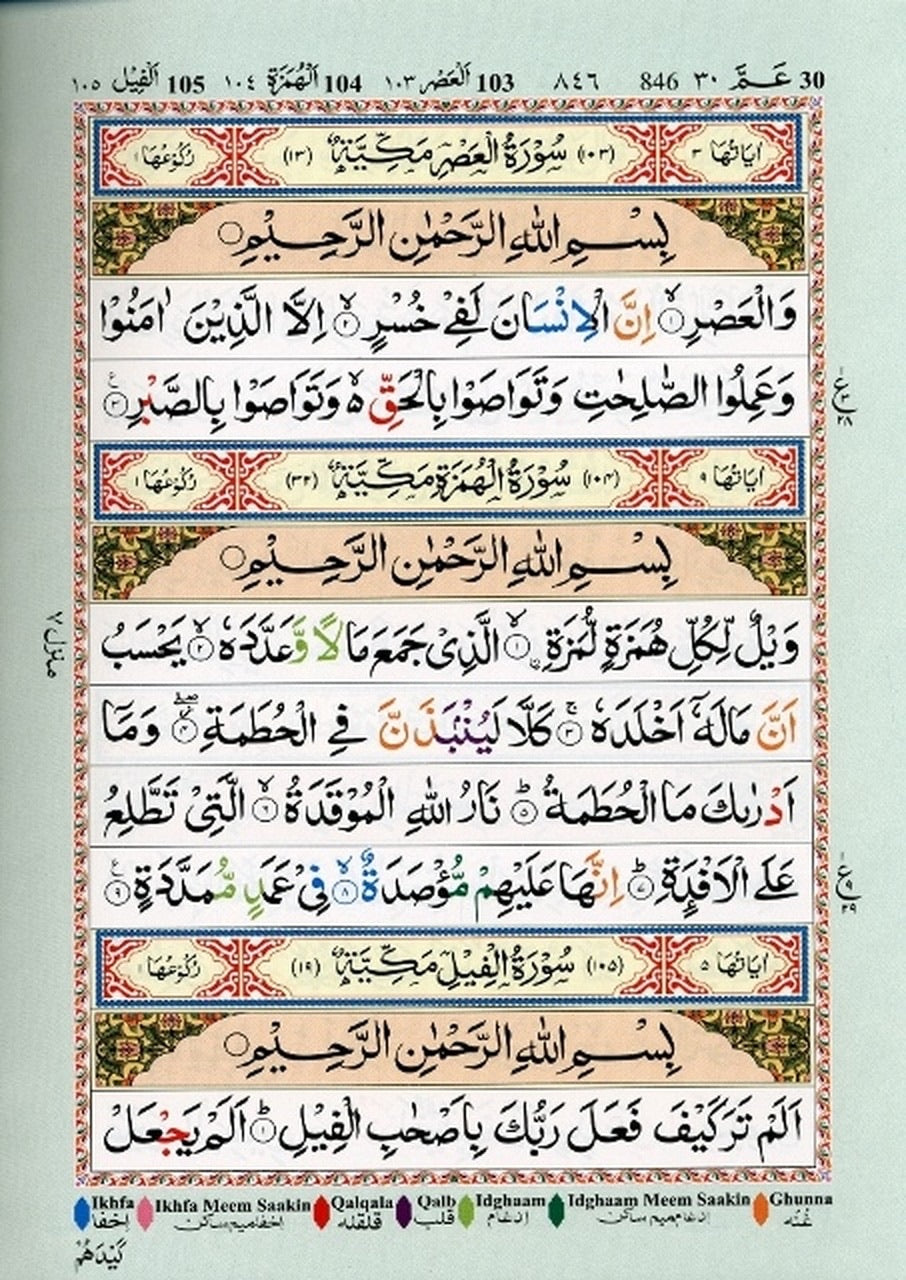 30 عَمَّ ٣٠ 846 ٨٤٦ 103 اَلْعَصْر ١٠٣ 104 اَلْهُمَزَة ١٠٤ 105 اَلْفِيْل ١٠٥
اٰيَاتُهَا ٣ (١٠٣) سُوْرَةُ الْعَصْرِ مَكِّيَّةٌ (١٣) رُكُوْعُهَا ١
بِسْمِ اللهِ الرَّحْمٰنِ الرَّحِيْمِ
وَالْعَصْرِ ١ اِنَّ الْاِنْسَانَ لَفِيْ خُسْرٍ ٢ اِلَّا الَّذِيْنَ اٰمَنُوْا
وَعَمِلُوا الصّٰلِحٰتِ وَتَوَاصَوْا بِالْحَقِّ ەۙ وَتَوَاصَوْا بِالصَّبْرِ ٣
ع ٢٨
اٰيَاتُهَا ٩ (١٠٤) سُوْرَةُ الْهُمَزَةِ مَكِّيَّةٌ (٣٢) رُكُوْعُهَا ١
بِسْمِ اللهِ الرَّحْمٰنِ الرَّحِيْمِ
وَيْلٌ لِّكُلِّ هُمَزَةٍ لُّمَزَةِ ۙ ١ الَّذِيْ جَمَعَ مَالًا وَّعَدَّدَهٗ ٢ يَحْسَبُ
اَنَّ مَالَهٗۤ اَخْلَدَهٗ ٣ كَلَّا لَيُنْۢبَذَنَّ فِي الْحُطَمَةِ ٤ وَمَاۤ
اَدْرٰىكَ مَا الْحُطَمَةُ ٥ نَارُ اللهِ الْمُوْقَدَةُ ٦ الَّتِيْ تَطَّلِعُ
عَلَى الْاَفْـِٕدَةِ ٧ اِنَّهَا عَلَيْهِمْ مُّؤْصَدَةٌ ٨ فِيْ عَمَدٍ مُّمَدَّدَةٍ ٩
ع ٩ ٢٩
منزل ٧
اٰيَاتُهَا ٥ (١٠٥) سُوْرَةُ الْفِيْلِ مَكِّيَّةٌ (١٩) رُكُوْعُهَا ١
بِسْمِ اللهِ الرَّحْمٰنِ الرَّحِيْمِ
اَلَمْ تَرَ كَيْفَ فَعَلَ رَبُّكَ بِاَصْحٰبِ الْفِيْلِ ١ اَلَمْ يَجْعَلْ
Ikhfa Ikhfa Meem Saakin Qalqala Qalb Idghaam Idghaam Meem Saakin Ghunna
اخفا اخفا میم ساکن قلقلہ قلب ادغام ادغام میم ساکن غنّہ
كَيْدَهُمْ